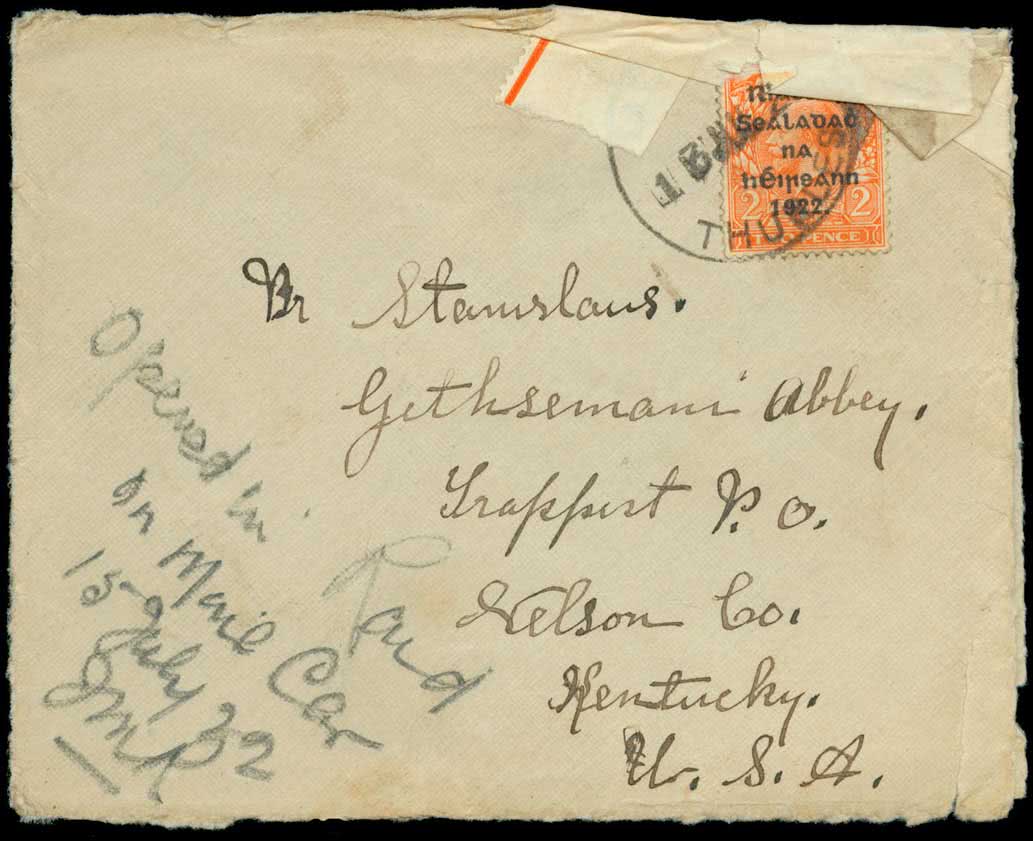 Sealadac
na
hÉireann
1922.
2 2
TWO PENCE
THURLES
Br Stanislaus.
Gethsemani Abbey.
Trappist P. O.
Nelson Co.
Kentucky.
U. S. A.
Opened in
Raid
on Mail Car
15 July 22